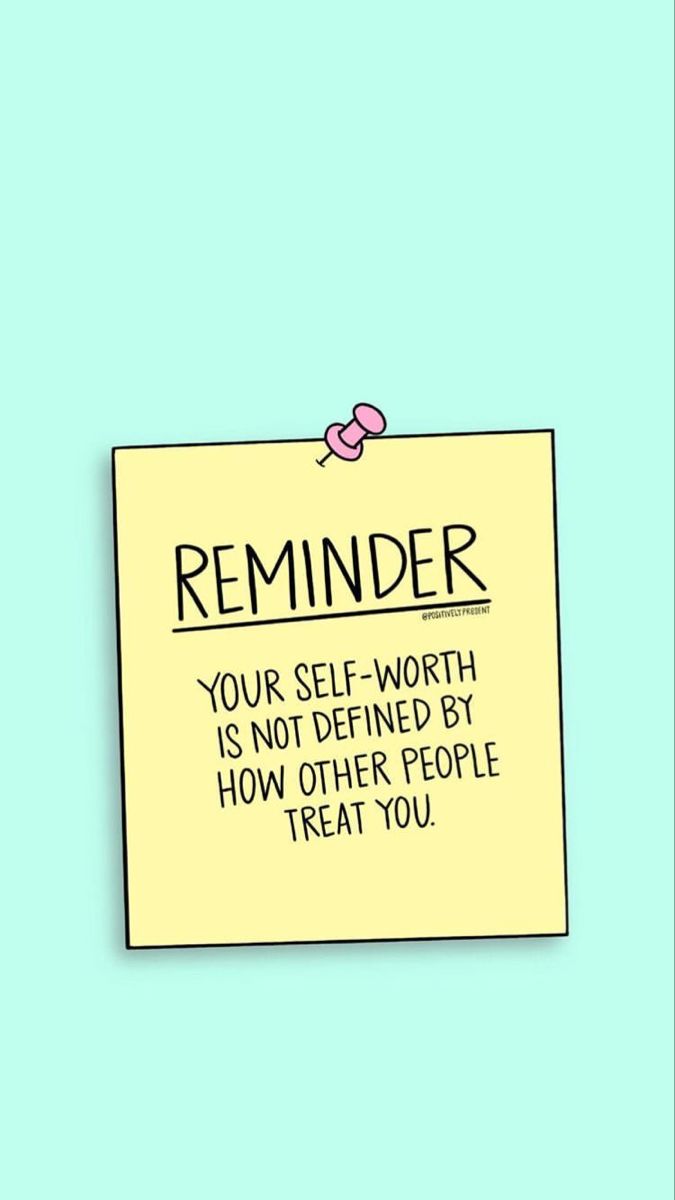 REMINDER
@POSITIVELYPRESENT
YOUR SELF-WORTH
IS NOT DEFINED BY
HOW OTHER PEOPLE
TREAT YOU.